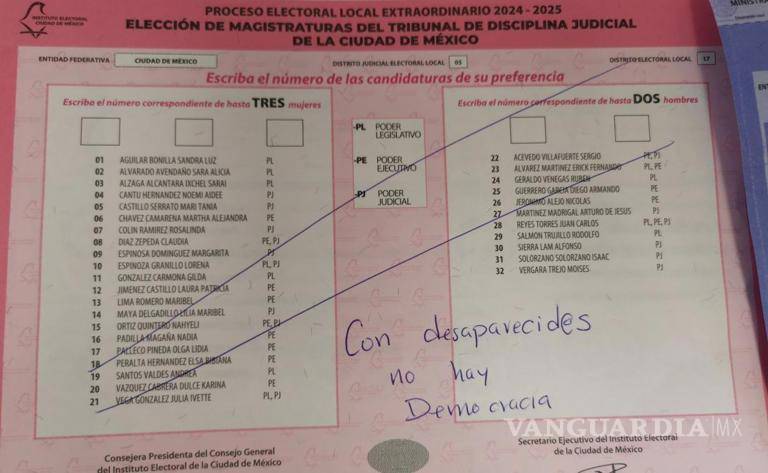 INSTITUTO ELECTORAL
CIUDAD DE MÉXICO
PROCESO ELECTORAL LOCAL EXTRAORDINARIO 2024 - 2025
ELECCIÓN DE MAGISTRATURAS DEL TRIBUNAL DE DISCIPLINA JUDICIAL
DE LA CIUDAD DE MÉXICO
ENTIDAD FEDERATIVA CIUDAD DE MÉXICO DISTRITO JUDICIAL ELECTORAL LOCAL 05 DISTRITO ELECTORAL LOCAL 17
Escriba el número de las candidaturas de su preferencia
Escriba el número correspondiente de hasta TRES mujeres
01 AGUILAR BONILLA SANDRA LUZ PL
02 ALVARADO AVENDAÑO SARA ALICIA PL
03 ALZAGA ALCANTARA IXCHEL SARAI PL
04 CANTU HERNANDEZ NOEMI AIDEE PJ
05 CASTILLO SERRATO MARI TANIA PJ
06 CHAVEZ CAMARENA MARTHA ALEJANDRA PE
07 COLIN RAMIREZ ROSALINDA PJ
08 DIAZ ZEPEDA CLAUDIA PE, PJ
09 ESPINOSA DOMINGUEZ MARGARITA PJ
10 ESPINOZA GRANILLO LORENA PL, PJ
11 GONZALEZ CARMONA GILDA PL
12 JIMENEZ CASTILLO LAURA PATRICIA PE
13 LIMA ROMERO MARIBEL PE
14 MAYA DELGADILLO LILIA MARIBEL PJ
15 ORTIZ QUINTERO NAHYELI PE, PJ
16 PADILLA MAGAÑA NADIA PE
17 PALLECO PINEDA OLGA LIDIA PE
18 PERALTA HERNANDEZ ELSA BIBIANA PE
19 SANTOS VALDES ANDREA PL
20 VAZQUEZ CABRERA DULCE KARINA PE
21 VEGA GONZALEZ JULIA IVETTE PL, PJ
-PL PODER
LEGISLATIVO
-PE PODER
EJECUTIVO
-PJ PODER
JUDICIAL
Escriba el número correspondiente de hasta DOS hombres
22 ACEVEDO VILLAFUERTE SERGIO PE, PJ
23 ALVAREZ MARTINEZ ERICK FERNANDO PL, PE
24 GERALDO VENEGAS RUBEN PL
25 GUERRERO GARCIA DIEGO ARMANDO PE
26 JERONIMO ALEJO NICOLAS PE
27 MARTINEZ MADRIGAL ARTURO DE JESUS PJ
28 REYES TORRES JUAN CARLOS PL, PE, PJ
29 SALMON TRUJILLO RODOLFO PL
30 SIERRA LAM ALFONSO PJ
31 SOLORZANO SOLORZANO ISAAC PJ
32 VERGARA TREJO MOISES PJ
Con desaparecid@s
no hay
Democracia
VANGUARDIA|MX
Consejera Presidenta del Consejo General
del Instituto Electoral de la Ciudad de México
Secretario Ejecutivo del Instituto Electoral
de la Ciudad de México